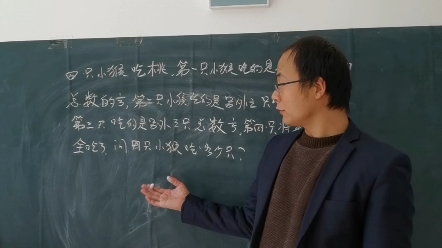 四只小猴吃桃,第一只小猴吃的是
总数的,第二只小猴吃的是另外三只
第三只吃的是另外三只总数,第四只
全吃了 问四只小猴吃 多少只?